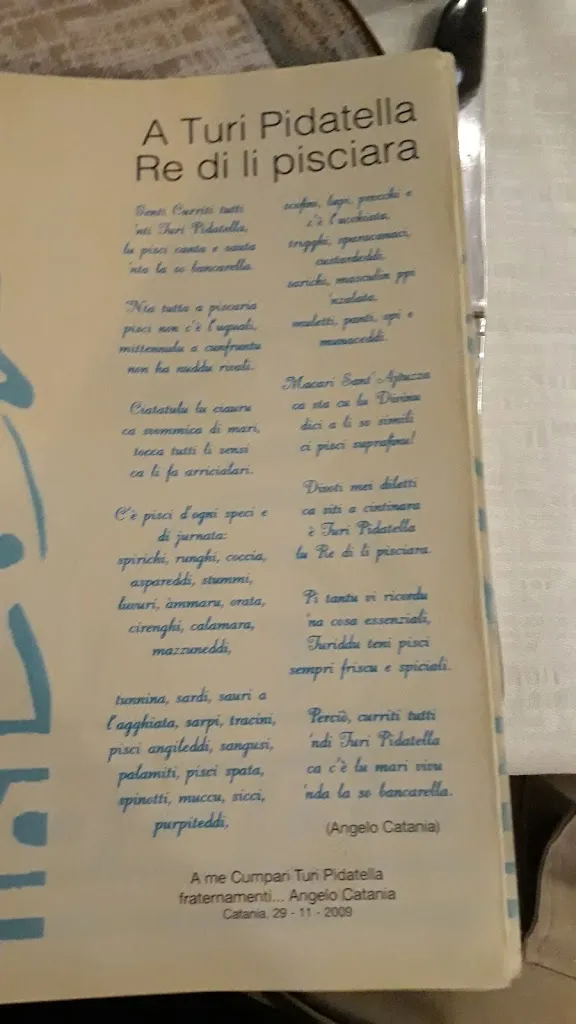 A Turi Pidatella
Re di li pisciara
Genti Curriti tutti
'nti Turi Pidatella,
lu pisci canta e sauta
'nta la so bancarella.
'Nta tutta a piscaria
pisci non c'è l'uguali,
mittennulu a cunfruntu
non ha nuddu rivali.
Ciatatulu lu ciauru
ca svommica di mari,
tocca tutti li sensi
ca li fa arricialari.
C'è pisci d'ogni speci e
di jurnata:
spirichi, runghi, coccia,
aspareddi, stummi,
luvuri, àmmaru, orata,
cirenghi, calamara,
mazzuneddi,
tunnina, sardi, sauri a
l'agghiata, sarpi, tracini,
pisci angileddi, sangusi,
palamiti, pisci spata,
spinotti, muccu, sicci,
purpiteddi,
scofini, lupi, precchi e
c'è l'ucchiata,
trigghi,
custardeddi,
sarichi, masculin ppi
'nzalata,
muletti, panti, opi e
munaceddi.
Macari Sant' Ajituzza
ca sta cu lu Divinu
dici a li so simili
ci pisci suprafinu!
Divoti mei diletti
ca siti a cintinara
è Turi Pidatella
lu Re di li pisciara.
Pi tantu vi ricordu
'na cosa essenziali,
Turiddu teni pisci
sempri friscu e spiciali.
Perciò, curriti tutti
'ndi Turi Pidatella
ca c'è lu mari vivu
'nda la so bancarella.
(Angelo Catania)
A me Cumpari Turi Pidatella
fraternamenti... Angelo Catania
Catania, 29 - 11 - 2009